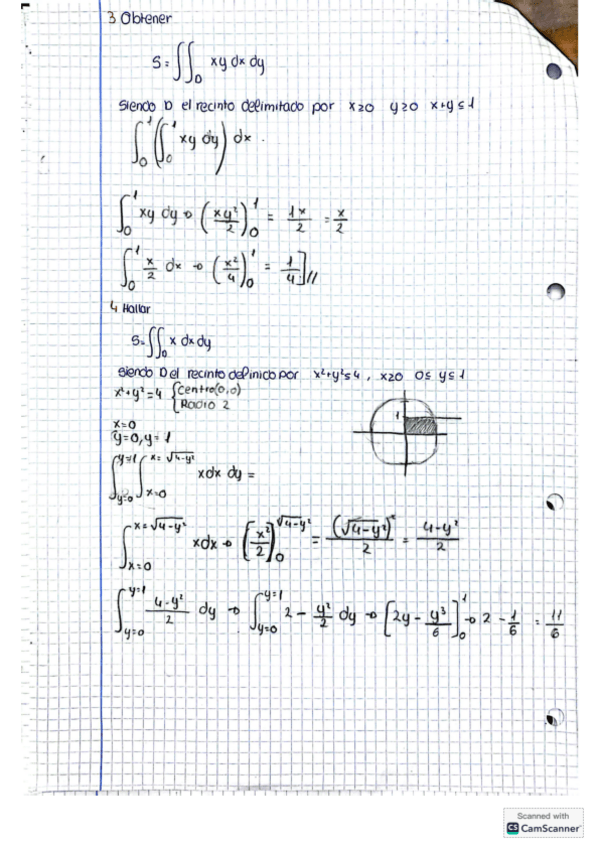 3 Obtener
S = ∬_D xy dx dy
Siendo D el recinto delimitado por x≥0 y≥0 x+y≤1
∫_0^1 (∫_0^1 xy dy) dx .
∫_0^1 xy dy → (xy²/2)_0^1 = 1x/2 = x/2
∫_0^1 x/2 dx → (x²/4)_0^1 = 1/4 ]//
4 Hallar
S = ∬_D x dx dy
Siendo D el recinto definido por x²+y²≤4, x≥0 0≤y≤1
x²+y²=4 { Centro (0,0)
Radio 2
x=0
y=0, y=1
1
∫_{y=0}^{y=1} ∫_{x=0}^{x=√4-y²} x dx dy =
∫_{x=0}^{x=√4-y²} x dx → [x²/2]_0^{√4-y²} = (√4-y²)²/2 = 4-y²/2
∫_{y=0}^{y=1} 4-y²/2 dy → ∫_{y=0}^{y=1} 2 - y²/2 dy → [2y - y³/6]_0^1 → 2 - 1/6 = 11/6
Scanned with
CS CamScanner